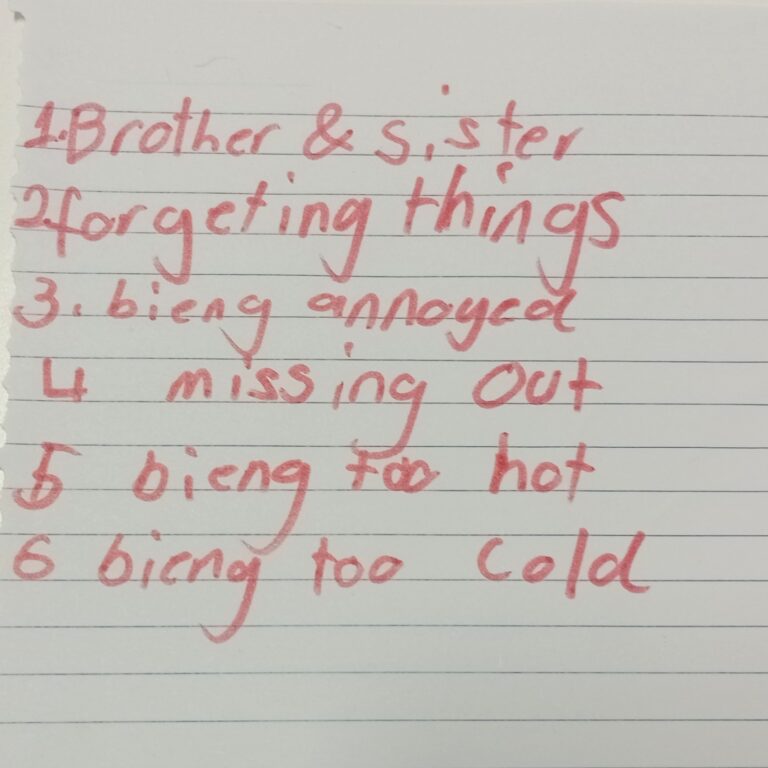 1.Brother & sister
2.forgeting things
3. bieng annoyed
4 missing out
5 bieng too hot
6 bieng too cold